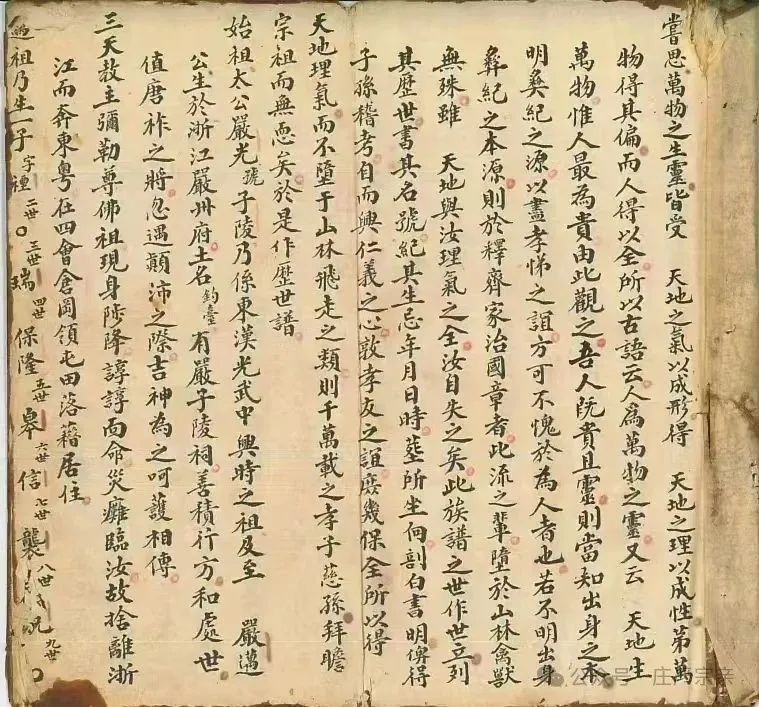 嘗思萬物之生靈皆受 天地之氣以成形得 天地之理以成性第萬
物得其偏而人得以全所以古語云人為萬物之靈又云 天地生
萬物惟人最為貴由此觀之吾人既貴且靈則當知出身之本
明彝紀之源以盡孝悌之誼方可不愧於為人者也若不明出身
彝紀之本源則於釋齊家治國章者此流之輩墮於山林禽獸
無殊雖 天地與汝理氣之全汝自失之矣此族譜之世作世立列
其歷世書其名號紀其生忌年月日時塟所坐向剖白書明俾得
子孫稽考自而興仁義之心敦孝友之誼庶幾保全所以得
天地理氣而不墮于山林飛走之類則千萬載之孝子慈孫拜瞻
宗祖而無忝矣於是作歷世譜
始祖太公嚴光號子陵乃係東漢光武中興時之祖及至 嚴邁
公生於浙江嚴州府土名釣臺有嚴子陵祠善積行方和處世
值唐祚之將忽遇顛沛之際吉神為之呵護相傳
三天教主彌勒尊佛祖現身陟降諄諄面命災癱臨汝故捨離浙
江而奔東粵在四會倉岡領屯田落籍居住
祖乃生一子字 二世 三世瑞 四世保隆 五世皋 六世信 七世襲 八世 九世
公众号 庄 宗亲